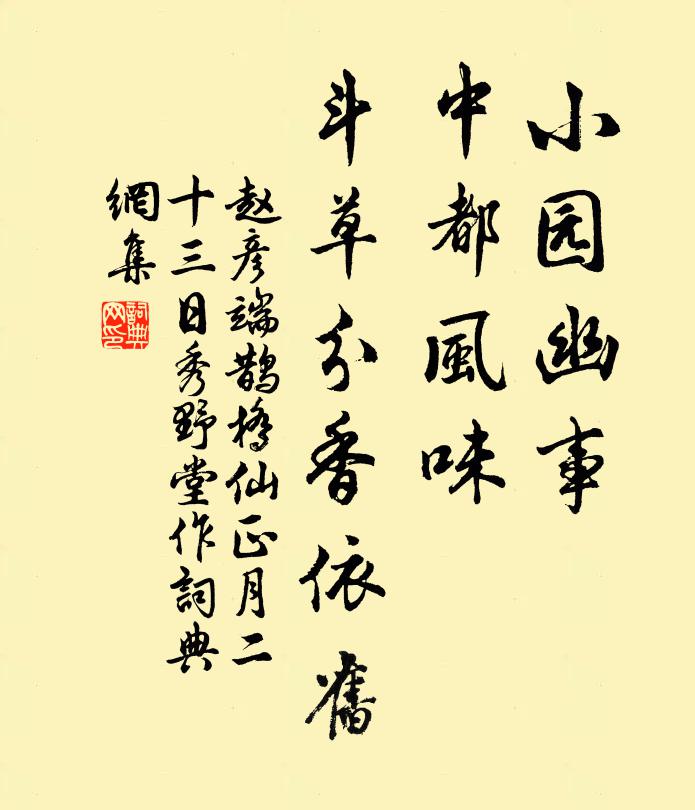 小园幽事
中都風味
斗草分香依舊
赵彦端鹊橋仙正月二
十三日秀野堂作詞典
網集
詞典
网印